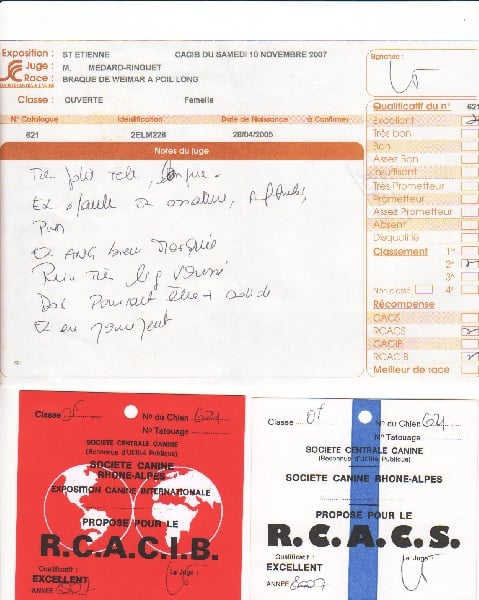 Exposition : ST ETIENNE CACIB DU SAMEDI 10 NOVEMBRE 2007
Juge : M. MEDARD-RINGUET
Race : BRAQUE DE WEIMAR A POIL LONG
Classe : OUVERTE Femelle
N° Catalogue Identification Date de Naissance à Confirmer
621 2ELM228 28/04/2005
Notes du juge
Très jolie tête, longue
Ex
Ex ANG bien
Rein très lég
Dos Pourrait être + solide
Signature :
Qualificatif du n° 621
Excellent
Très bon
Bon
Assez Bon
Insuffisant
Très Prometteur
Prometteur
Assez Prometteur
Absent
Disqualifié
Classement 1er
2e
3e
Non classé 4e
Récompense
CACS
RCACS
CACIB
RCACIB
Meilleur de race
Classe OF N° du Chien 621
N° Tatouage
SOCIETE CENTRALE CANINE
(Reconnue d'Utilité Publique)
SOCIETE CANINE
RHONE-ALPES
EXPOSITION CANINE INTERNATIONALE
PROPOSE POUR LE
R.C.A.C.I.B.
Qualificatif :
EXCELLENT
Le Juge :
ANNÉE 2007
Classe OF N° du Chien 621
N° Tatouage
SOCIETE CENTRALE CANINE
(Reconnue d'Utilité Publique)
SOCIETE CANINE RHONE-ALPES
PROPOSE POUR LE
R.C.A.C.S.
Qualificatif :
EXCELLENT
Le Juge :
ANNÉE 2007